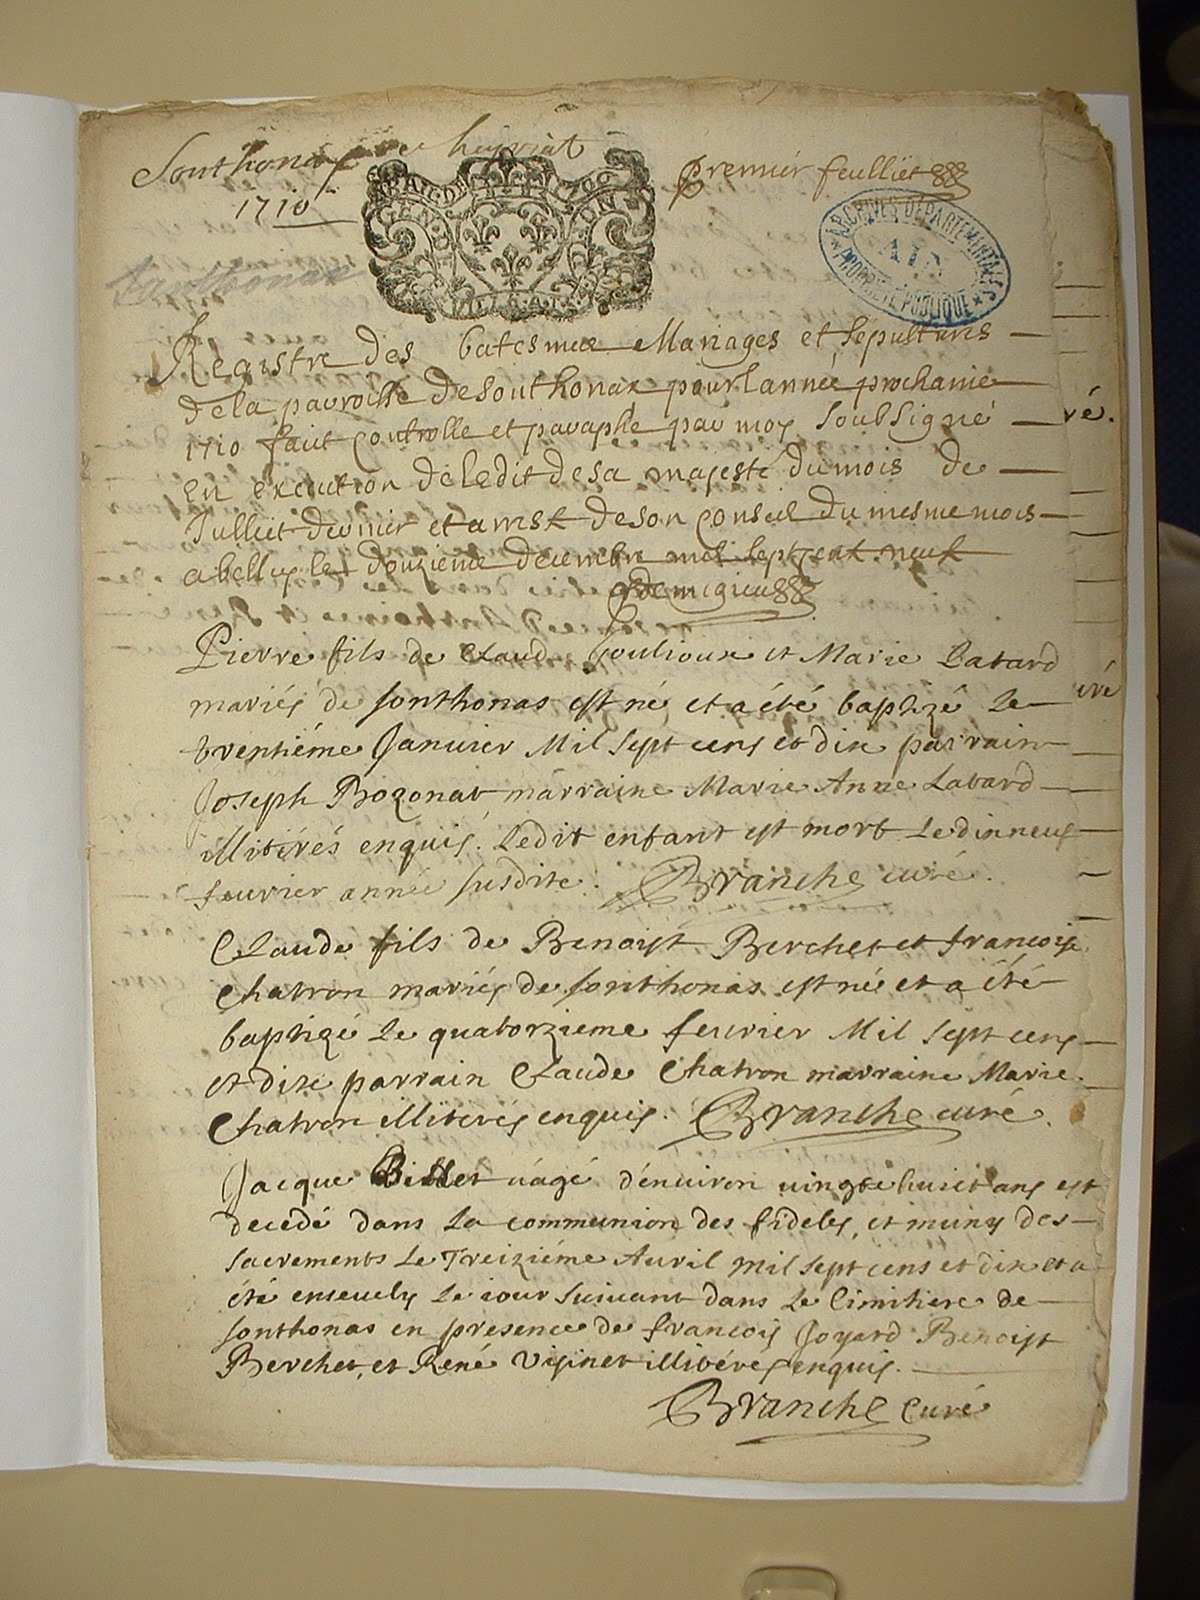 Sonthonax de heyriat
premier feulliet
1710
Sonthonax
GEN ON
ARCHIVES DEPARTEMENTALES
AIN
PROPRIETE PUBLIQUE
Registre des batesmes Mariages et sepultures
de la parroisse de Sonthonax pour l'année prochaine
1710 fait controlle et paraphé par moy soubsigné
en execution de ledit de sa majesté du mois de
Julliet dernier et arrest de son conseil du mesme mois
a belley le douzieme decembre mil sept cent neuf
Pierre fils de Claud Goulioux et Marie Labard
mariés de sonthonas est né et a été baptizé le
trentiéme Janvier Mil sept cens et dix parrain
Joseph Bozonat marraine Marie Anne Labard
illiterés enquis. Ledit enfant est mort le dinneuf
feuvrier année susdite. Branche curé.
Claude fils de Benoist Berchet et francoise
Chatron mariés de sonthonas est né et a été
baptizé le quatorzieme feuvrier Mil sept cens
et dix parrain Claude Chatron marraine Marie
Chatron illiterés enquis. Branche curé.
Jacque Billet aagé d'environ vingt huict ans est
decedé dans la communion des fideles, et muny des
sacrements le Treiziéme Avril mil sept cens et dix et a
été ensevely le iour suivant dans le Cimitiere de
sonthonas en presence de francois Joyard Benoist
Berchet, et René Visinet illiterés enquis.
Branche Curé